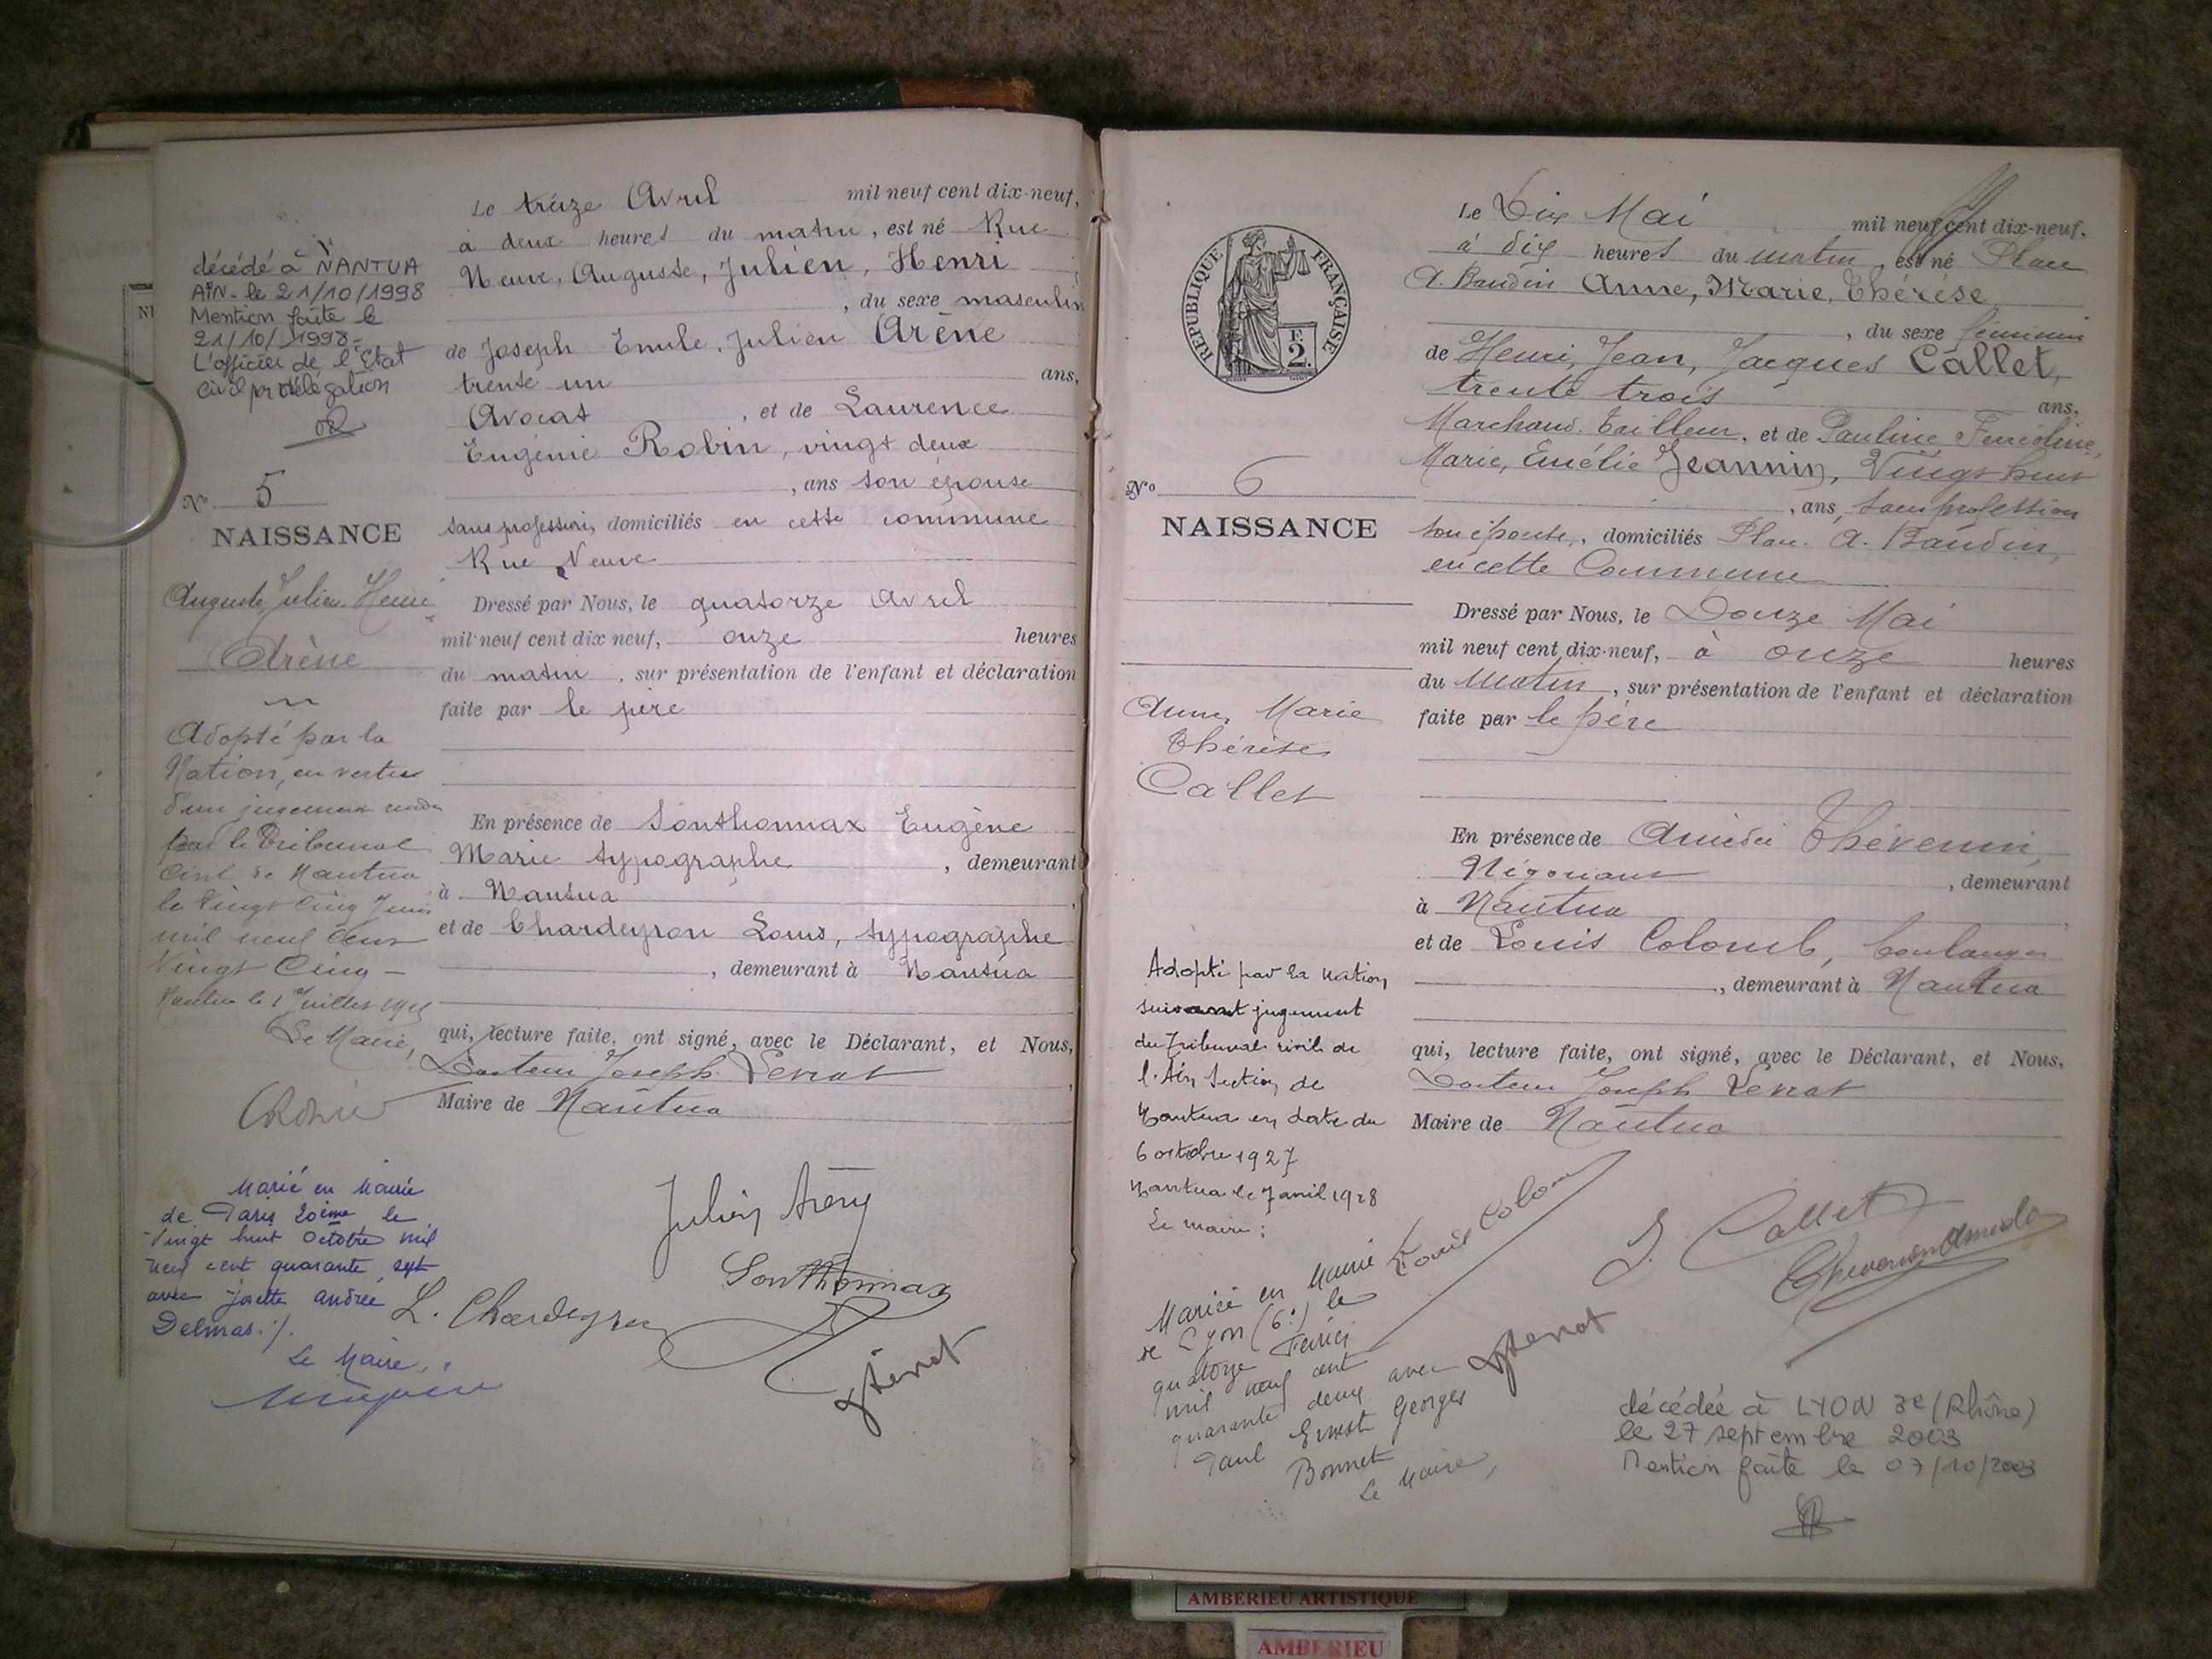 décédé à NANTUA
AIN - le 21/10/1998
Mention faite le
21/10/1998 -
L'officier de l'Etat
Civil par délégation
N° 5
NAISSANCE
Auguste, Julien, Henri
Arène
Adopté par la
Nation, en vertu
d'un jugement rendu
par le Tribunal
Civil de Nantua
le Vingt Cinq Juin
mil neuf cent
Vingt Cinq -
Nantua le 1 Juillet 1925
Le Maire,
Marié en Mairie
de Paris 20ème le
Vingt huit Octobre mil
neuf cent quarante sept
avec Josette Andrée
Delmas ./.
Le Maire,
Le treize Avril mil neuf cent dix-neuf,
à deux heures du matin, est né Rue
Neuve, Auguste, Julien, Henri
, du sexe masculin
de Joseph Emile, Julien Arène
trente un ans,
Avocat , et de Laurence
Eugénie Robin, vingt deux
, ans son épouse
sans profession, domiciliés en cette commune
Rue Neuve
Dressé par Nous, le quatorze Avril
mil neuf cent dix neuf, onze heures
du matin , sur présentation de l'enfant et déclaration
faite par le père
En présence de Sonthonnax Eugène
Marie typographe , demeurant
à Nantua
et de Chardeyron Louis, typographe
, demeurant à Nantua
qui, lecture faite, ont signé, avec le Déclarant, et Nous,
Docteur Joseph Verrat
Maire de Nantua
Julien Arène
Sonthonnax
L. Chardeyron
RÉPUBLIQUE FRANÇAISE
F.
2.
N° 6
NAISSANCE
Anne, Marie
Thérèse
Callet
Adopté par la Nation
suivant jugement
du Tribunal civil de
l'Ain Section de
Nantua en date du
6 octobre 1927
Nantua le 7 avril 1928
Le maire :
Mariée en Mairie
de Lyon (6e) le
quatorze Février
mil neuf cent
quarante deux avec
Paul Ernest Georges
Bonnet
Le Maire,
Le Dix Mai mil neuf cent dix-neuf,
à dix heures du matin, est né Place
A. Baudin Anne, Marie, Thérèse
, du sexe féminin
de Henri, Jean, Jacques Callet,
trente trois ans,
Marchand-Tailleur, et de Pauline Ferréoline,
Marie, Emélie Jeannin, Vingt huit
, ans, sans profession
son épouse, domiciliés Place A. Baudin,
en cette Commune
Dressé par Nous, le Douze Mai
mil neuf cent dix-neuf, à onze heures
du Matin , sur présentation de l'enfant et déclaration
faite par le père
En présence de Amédée Thévenin,
Négociant , demeurant
à Nantua
et de Louis Colomb, boulanger
, demeurant à Nantua
qui, lecture faite, ont signé, avec le Déclarant, et Nous,
Docteur Joseph Verrat
Maire de Nantua
Louis Colomb
J. Callet
Thévenin Amédée
décédée à LYON 3e (Rhône)
le 27 septembre 2003
Mention faite le 07/10/2003
AMBERIEU ARTISTIQUE
AMBERIEU